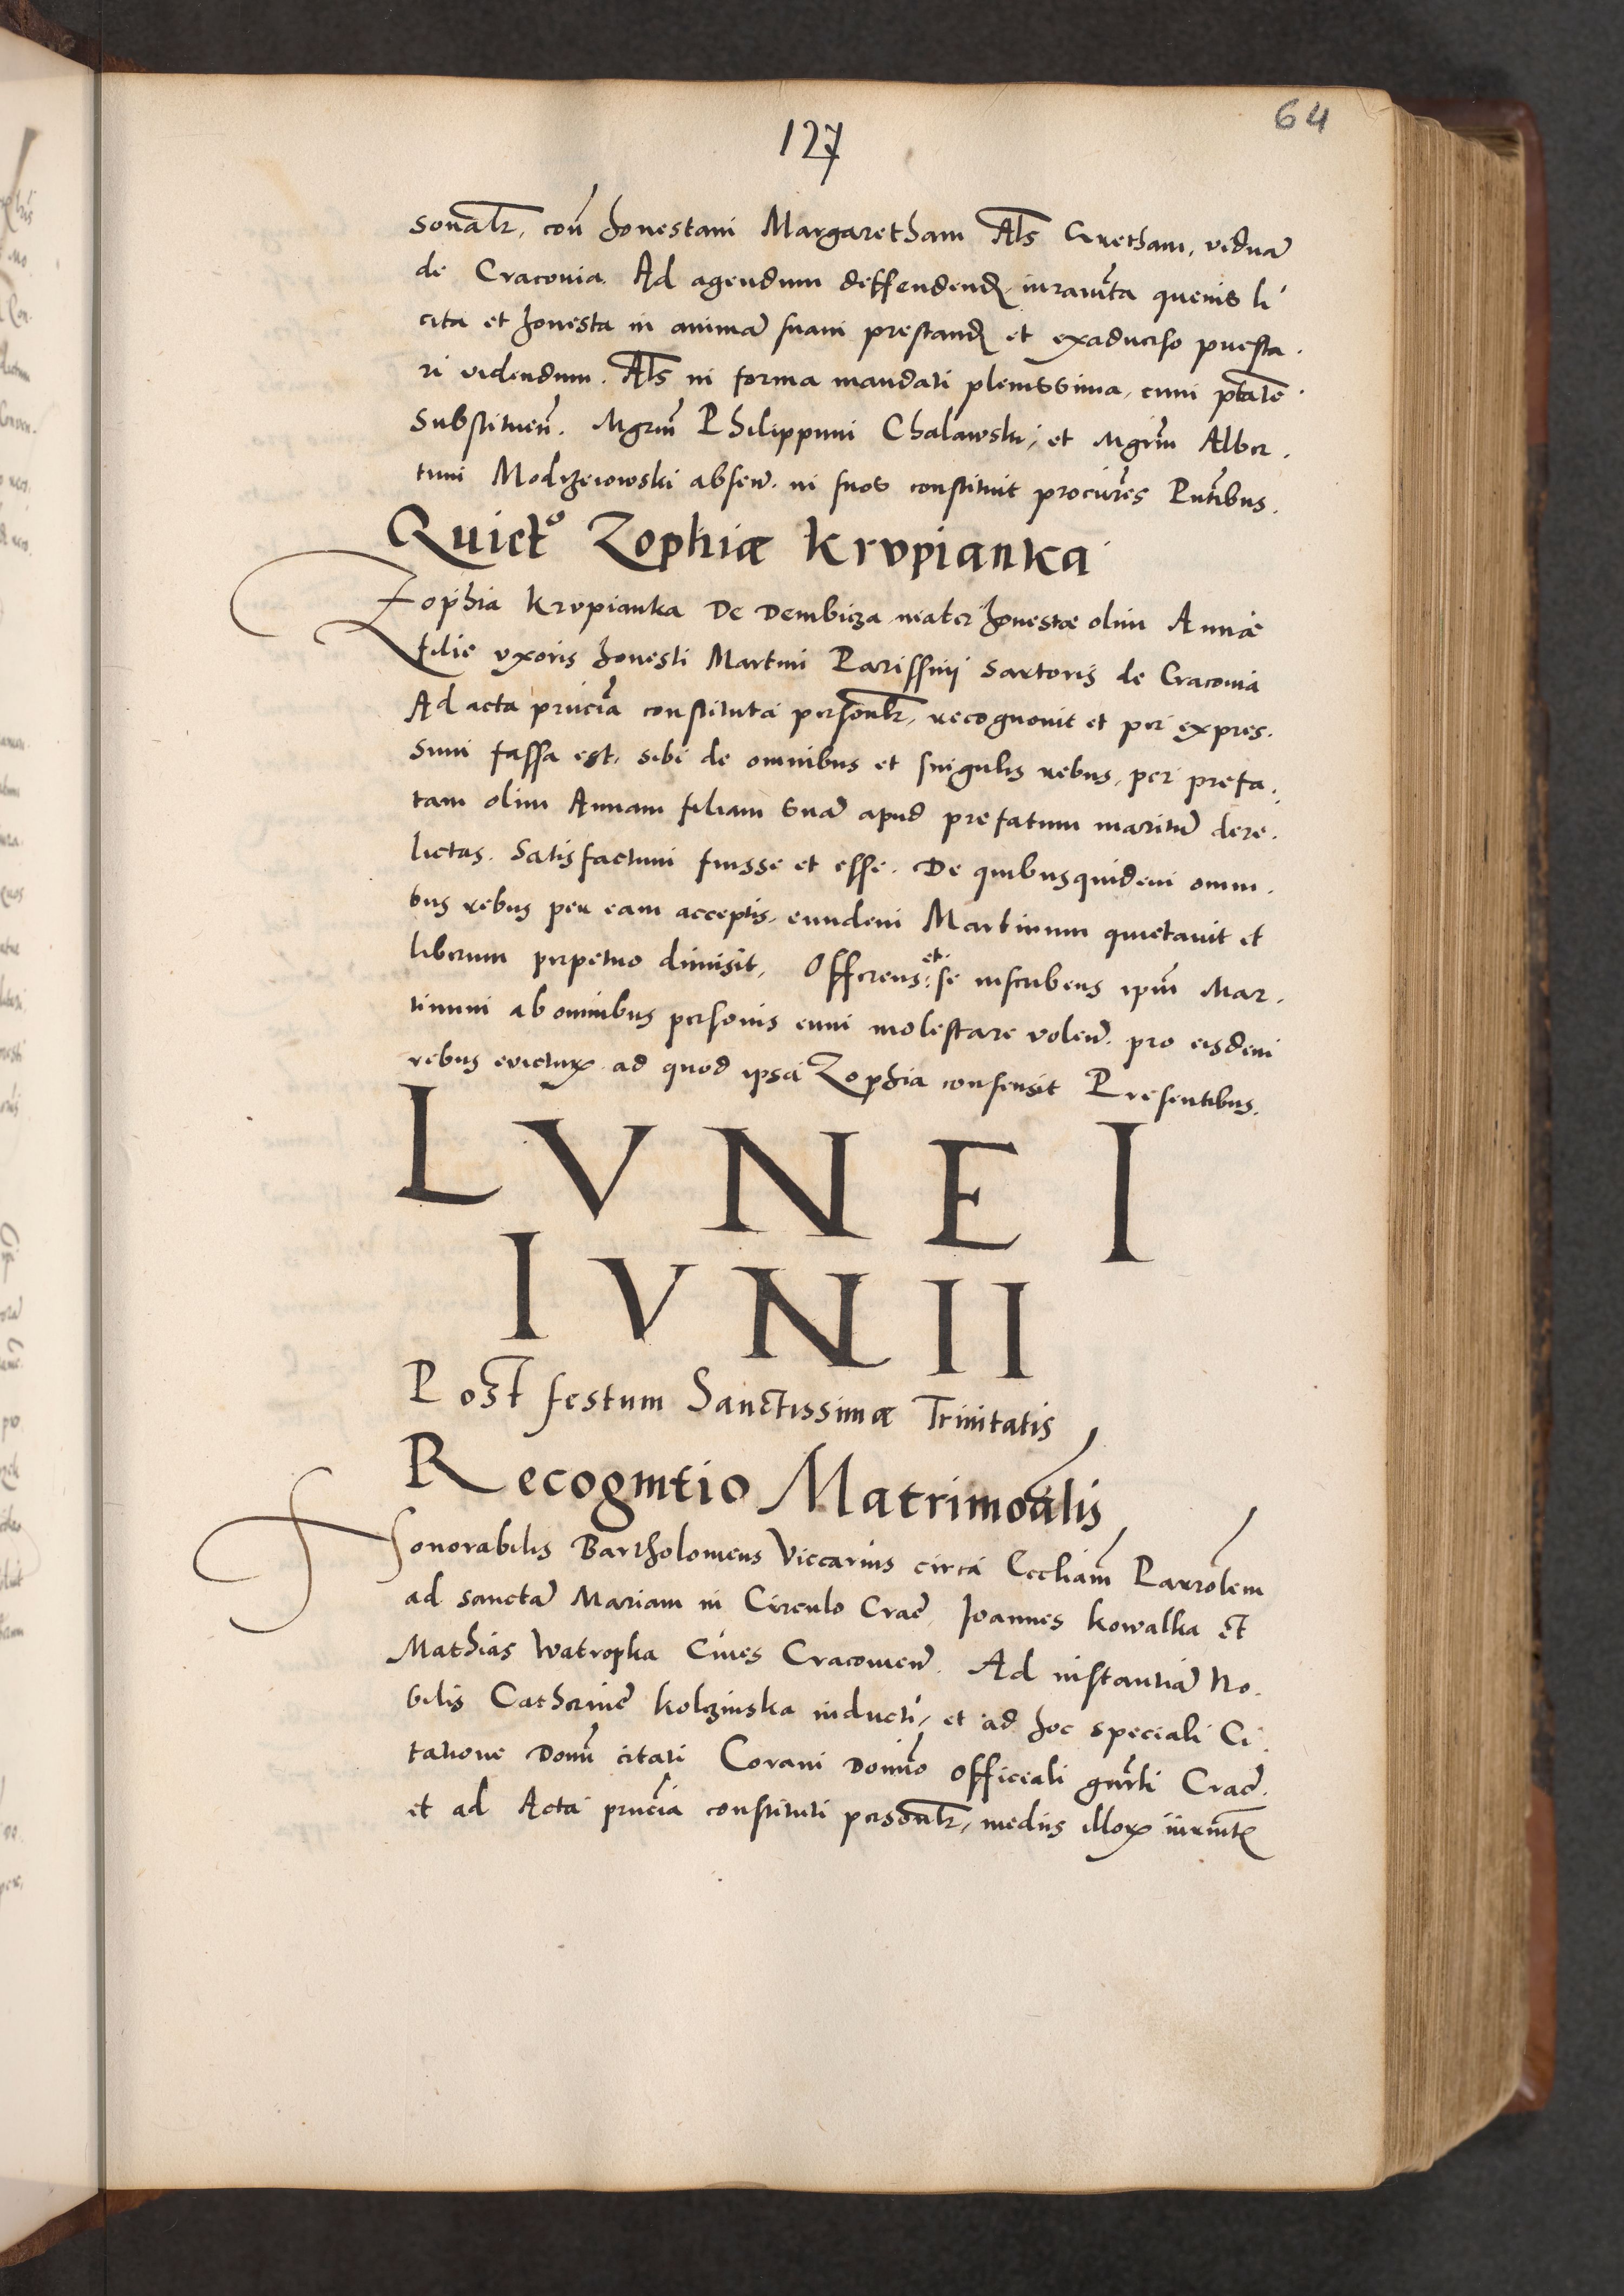 64
127
sonalr, con honestam Margaretham Als Gretham, viduã
de Craconia. Ad agendum deffendend, iuramta quevis li
cita et honesta in animã suam prestand et exaduerso presta.
ri videndum. Als in forma mandati plenissima, cum ptate
Substituen. Mgrm Philippum Chalawski, et Mgrm Alber.
tum Modrzeiowski absen. in suos constituit procures Pntibus.
Quicto Zophiæ Krvpianka
Zophia Krvpianka De Dembicza mater honestæ olim Annæ
filie vxoris honesti Martini Parissnij Sartoris de Craconia
Ad acta pñcia constituta personlr, recognouit et per expres.
sum fassa est, sibi de omnibus et singulis rebus, per prefa.
tam olim Annam filiam suã apud prefatum maritũ dere.
lictas. Satisfactum fuisse et esse. De quibusquidem omni.
bus rebus per eam acceptis, eundem Martinum quietauit et
liberum perpetuo dimisit, Offerens et se inscribens ipm Mar.
tinum ab omnibus personis eum molestare volen. pro eisdem
rebus evictur. ad quod ipsa Zophia consensit Presentibus.
LVNE I
IVNII
Post festum Sanctissimæ Trinitatis
Recognitio Matrimoalis
Honorabilis Bartholomeus Viccarius circa Eccliam Parrolem
ad sanctã Mariam in Circulo Crac, Joannes Kowalka et
Mathias Watropka Ciues Cracouien. Ad instantiã No.
bilis Catherine Kolzinska inducti, et ad hoc speciali Ci.
tatione Domi citati Coram Domino Officiali gnrli Crac.
et ad Acta pñcia constituti personlr, mediis illor iuramt